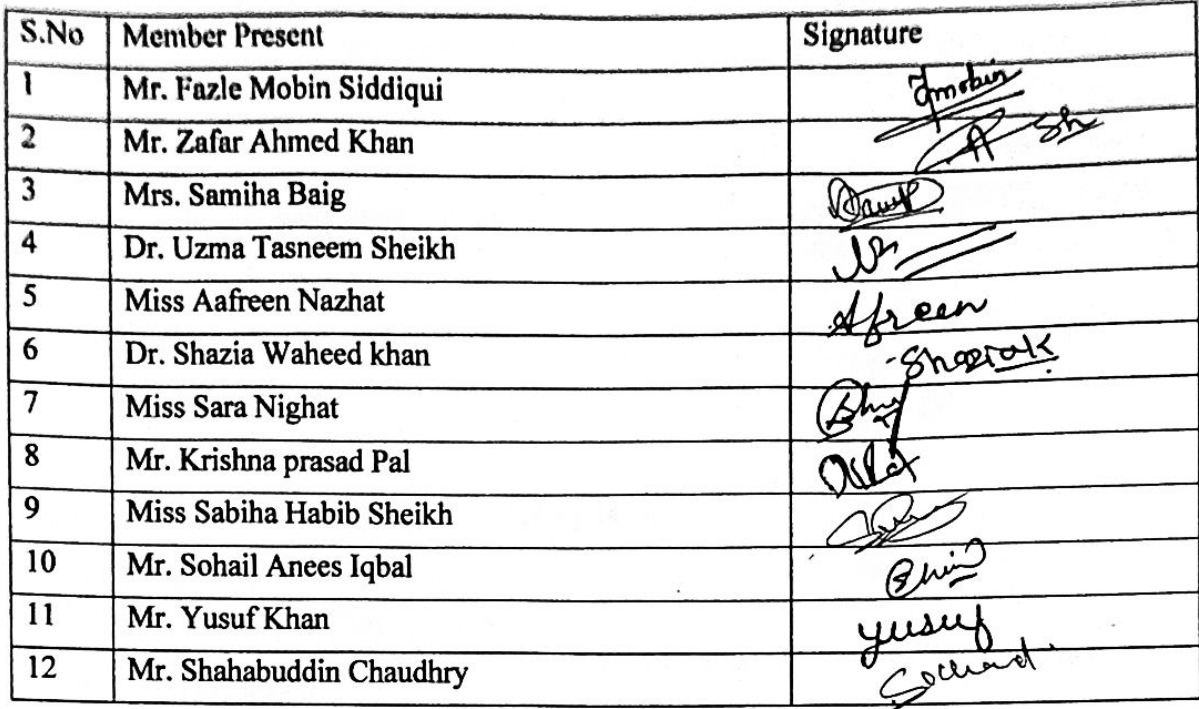 S.No Member Present Signature
1 Mr. Fazle Mobin Siddiqui fmobin
2 Mr. Zafar Ahmed Khan
3 Mrs. Samiha Baig
4 Dr. Uzma Tasneem Sheikh
5 Miss Aafreen Nazhat Afreen
6 Dr. Shazia Waheed khan
7 Miss Sara Nighat
8 Mr. Krishna prasad Pal
9 Miss Sabiha Habib Sheikh
10 Mr. Sohail Anees Iqbal
11 Mr. Yusuf Khan yusuf
12 Mr. Shahabuddin Chaudhry